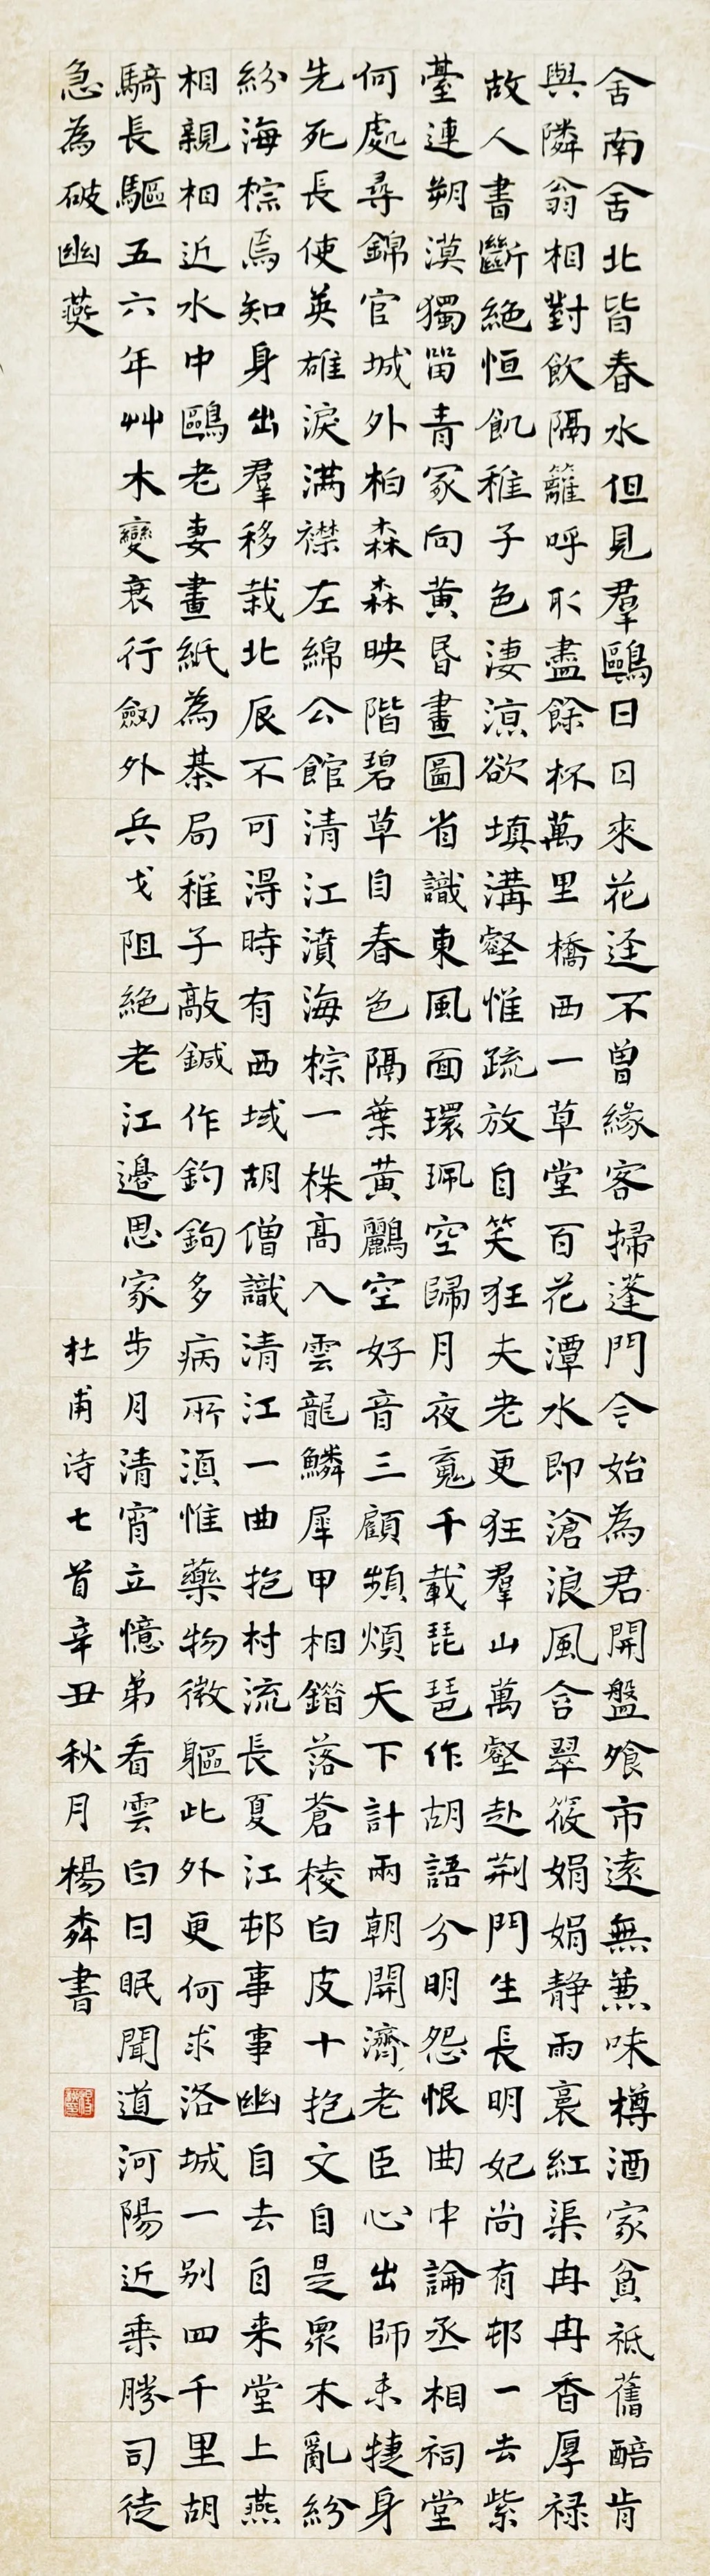 舍南舍北皆春水但見羣鷗日日來花迳不曾緣客掃蓬門今始為君開盤飧市遠無蒹味樽酒家貧祗舊醅肯
與隣翁相對飲隔籬呼取盡餘杯萬里橋西一草堂百花潭水即滄浪風含翠筱娟娟静雨裛紅渠冉冉香厚禄
故人書斷絕恒飢稚子色淒涼欲填溝壑惟疏放自笑狂夫老更狂羣山萬壑赴荆門生長明妃尚有邨一去紫
臺連朔漠獨留青冢向黃昏畫圖省識東風面環珮空歸月夜䰟千載琵琶作胡語分明怨恨曲中論丞相祠堂
何處尋錦官城外柏森森映階碧草自春色隔葉黃鸝空好音三顧頻煩天下計兩朝開濟老臣心出師未捷身
先死長使英雄淚满襟左綿公館清江濆海棕一株高入雲龍鱗犀甲相錯落蒼棱白皮十抱文自是眾木亂紛
紛海棕焉知身出羣移栽北辰不可得時有西域胡僧識清江一曲抱村流長夏江邨事事幽自去自来堂上燕
相親相近水中鷗老妻畫紙為棊局稚子敲鍼作釣鉤多病所須惟藥物微軀此外更何求洛城一别四千里胡
騎長驅五六年艸木變衰行劒外兵戈阻絕老江邊思家步月清宵立憶弟看雲白日眠聞道河陽近乘勝司徒
急為破幽燕
杜甫诗七首辛丑秋月楊書